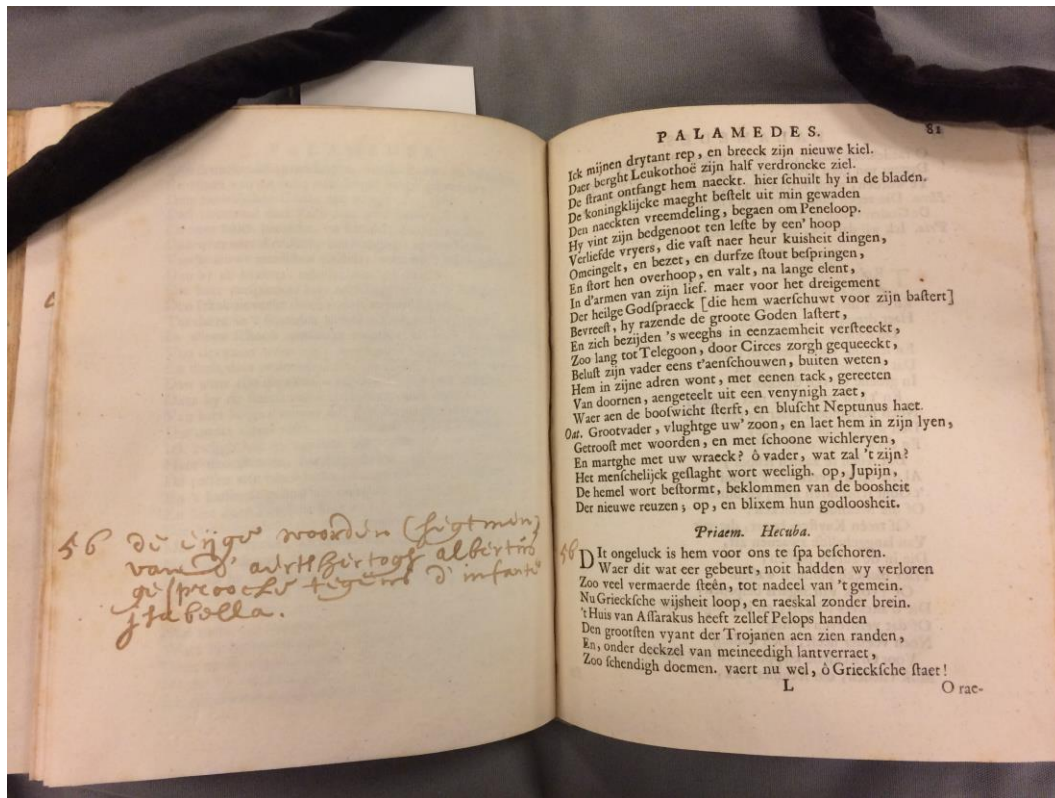 56 de eijge woorden (segtmen)
van d' aertshertogh albertus
gesproocke tegens d' infante
jsabella.
PALAMEDES. 81
Ick mijnen drytant rep, en breeck zijn nieuwe kiel.
Daer berght Leukothoë zijn half verdroncke ziel.
De ſtrant ontfangt hem naeckt. hier ſchuilt hy in de bladen.
De koningklijcke maeght beſtelt uit min gewaden
Den naeckten vreemdeling, begaen om Peneloop.
Hy vint zijn bedgenoot ten leſte by een' hoop
Verliefde vryers, die vaſt naer heur kuisheit dingen,
Omcingelt, en bezet, en durfze ſtout beſpringen,
En ſtort hen overhoop, en valt, na lange elent,
In d'armen van zijn lief. maer voor het dreigement
Der heilge Godſpraeck [die hem waerſchuwt voor zijn baſtert]
Bevreeſt, hy razende de groote Goden laſtert,
En zich bezijden 's weeghs in eenzaemheit verſteeckt,
Zoo lang tot Telegoon, door Circes zorgh gequeeckt,
Beluſt zijn vader eens t'aenſchouwen, buiten weten,
Hem in zijne adren wont, met eenen tack, gereeten
Van doornen, aengeteelt uit een venynigh zaet,
Waer aen de booſwicht ſterft, en bluſcht Neptunus haet.
Oat. Grootvader, vlughtge uw' zoon, en laet hem in zijn lyen,
Getrooſt met woorden, en met ſchoone wichleryen,
En martghe met uw wraeck? ô vader, wat zal 't zijn?
Het menſchelijck geſlaght wort weeligh. op, Jupijn,
De hemel wort beſtormt, beklommen van de boosheit
Der nieuwe reuzen; op, en blixem hun godloosheit.
Priaem. Hecuba.
56 DIt ongeluck is hem voor ons te ſpa beſchoren.
Waer dit wat eer gebeurt, noit hadden wy verloren
Zoo veel vermaerde ſteên, tot nadeel van 't gemein.
Nu Grieckſche wijsheit loop, en raeskal zonder brein.
't Huis van Aſſarakus heeft zellef Pelops handen
Den grootſten vyant der Trojanen aen zien randen,
En, onder deckzel van meineedigh lantverraet,
Zoo ſchendigh doemen. vaert nu wel, ô Grieckſche ſtaet!
L O rae-